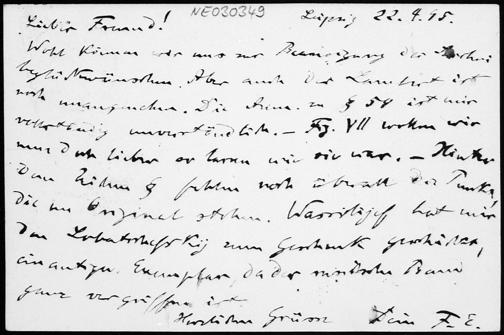 NE030349
Lieber Freund! Leipzig 22.4.95.
Wohl können wir uns zur Beendigung der
beglückwünschen. Aber auch der ist
noch . Die Anm. zu § 58 ist mir
vollständig unverständlich. – Fig. VII wollen wir
nun doch lieber so lassen wie sie war. – Hinter
dem Zeichen § fehlen noch überall die Punkte,
die im Original stehen. Wassilijef hat mir
den Lobatschefskij zum Geschenk geschickt,
ein Exemplar, da der russische Band
ganz vergriffen ist.
Herzlichen Grüsse Dein F. E.